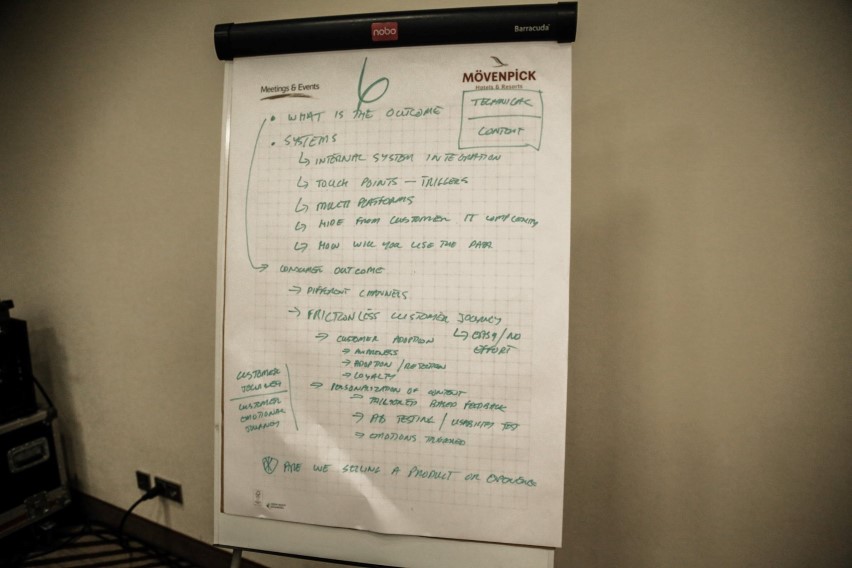 nobo
Barracuda
Meetings & Events
6
MÖVENPICK
Hotels & Resorts
TECHNICAL
CONTENT
• WHAT IS THE OUTCOME
• SYSTEMS
↳ INTERNAL SYSTEM INTEGRATION
↳ TOUCH POINTS — TRIGGERS
↳ MULTI PLATFORMS
↳ HIDE FROM CUSTOMER IT COMPLEXITY
↳ HOW WILL YOU USE THE DATA
→ CONSUMER OUTCOME
→ DIFFERENT CHANNELS
→ FRICTIONLESS CUSTOMER JOURNEY
↳ EASY/NO EFFORT
→ CUSTOMER ADOPTION
→ AWARENESS
→ ADOPTION/RETENTION
→ LOYALTY
→ PERSONALIZATION OF CONTENT
→ TRIGGERED BASED FEEDBACK
→ AB TESTING / USABILITY TEST
→ EMOTIONS TRIGGERED
CUSTOMER
JOURNEY
CUSTOMER
EMOTIONAL
JOURNEY
ARE WE SELLING A PRODUCT OR EXPERIENCE